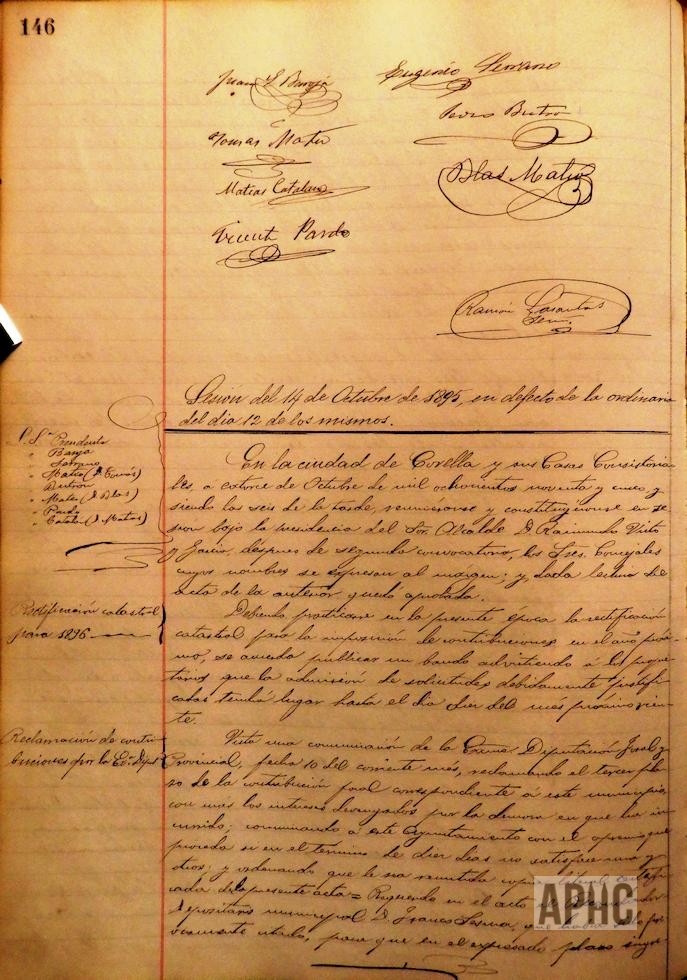 146
Juan J. Baroja
Eugenio Serrano
Tomas Mateo
Pedro Butron
Matias Catalan
Blas Mateo
Vicente Pardo
Ramón
Serio.
Sesion del 14 de Octubre de 1895, en defecto de la ordinaria
del dia 12 de los mismos.
S.S. Presidente
" Serrano
" Mateo (D. Tomás)
" Butron
" Mateo (D. Blas)
" Pardo
" Catalan (D. Matias)
En la ciudad de Corella y sus Casas Consistoria-
les, a catorce de Octubre de mil ochocientos noventa y cinco, y
siendo las seis de la tarde, reunieronse y constituyeronse en se-
sion bajo la presidencia del Sor. Alcalde D. Raimundo
y despues de segunda convocatoria, los Sres. Concejales
cuyos nombres se expresan al márgen; y, dada lectura del
acta de la anterior quedó aprobada.
Rectificacion catastral
para 1896
Debiendo practicarse en la presente época la rectificación
catastral para la imposición de contribuciones en el año próxi-
mo, se acuerda publicar un bando advirtiendo á los propie-
tarios que la admision de solicitudes debidamente justifi-
cadas tendrá lugar hasta el dia diez del mes próximo vien-
te.
Reclamación de contri-
buciones por la Ex. Dipu
Vista una comunicación de la Excma. Diputación foral y
Provincial, fecha 10 del corriente mes, reclamando el tercer pla-
zo de la contribución foral correspondiente á este municipio,
con mas los intereses devengados por la demora en que ha in-
currido; conminando a este Ayuntamiento con el apremio que
proceda si en el termino de diez dias no satisface uno y
otros, y ordenando que le sea remitida copia
cada de la presente acta = Requerido en el acto
Depositario municipal D. Franco
citado, para que en el expresado plazo ingre-
APHC